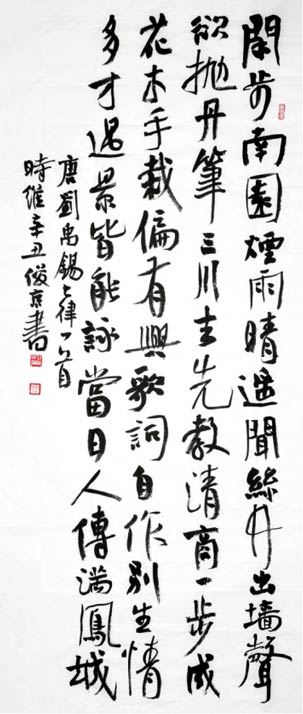 閒步南園煙雨晴遥聞絲竹出墙聲
欲抛丹筆三川去先教清商一步成
花木手栽偏有興歌詞自作別生情
多才遇景皆能詠當日人傳满鳳城
唐劉禹錫七律一首
時維辛丑俊書